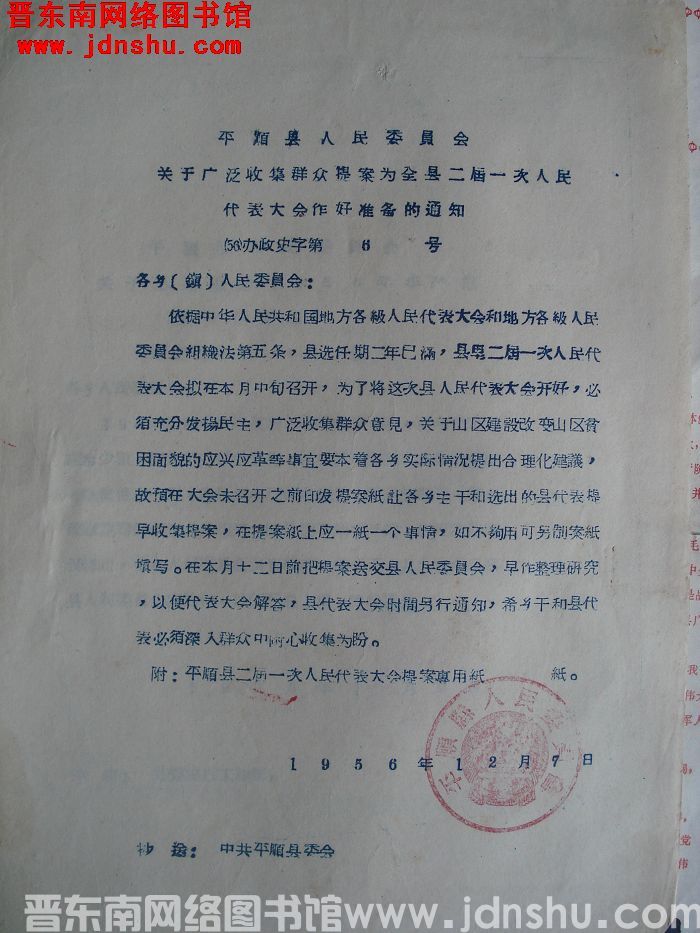 晋东南网络图书馆
www.jdnshu.com
平順县人民委員会
关于广泛收集群众提案为全县二届一次人民
代表大会作好准备的通知
(56)办政史字第 6 号
各乡(鎮)人民委員会:
依据中华人民共和国地方各級人民代表大会和地方各級人民
委員会組織法第五条,县选任期二年已滿,县第二届一次人民代
表大会拟在本月中旬召开,为了将这次县人民代表大会开好,必
須充分发揚民主,广泛收集群众意見,关于山区建設改变山区貧
困面貌的应兴应革等事宜要本着各乡实际情况提出合理化建議,
故預在大会未召开之前印发提案紙註各乡主干和选出的县代表提
早收集提案,在提案紙上应一紙一个事情,如不夠用可另制案紙
填写。在本月十二日前把提案送交县人民委員会,早作整理研究
,以便代表大会解答,县代表大会时間另行通知,希乡干和县代
表必須深入群众中耐心收集为盼。
附:平順县二届一次人民代表大会提案專用紙 紙。
平順縣人民委員會
1956年12月7日
抄送:中共平順县委会
晋东南网络图书馆 www.jdnshu.com